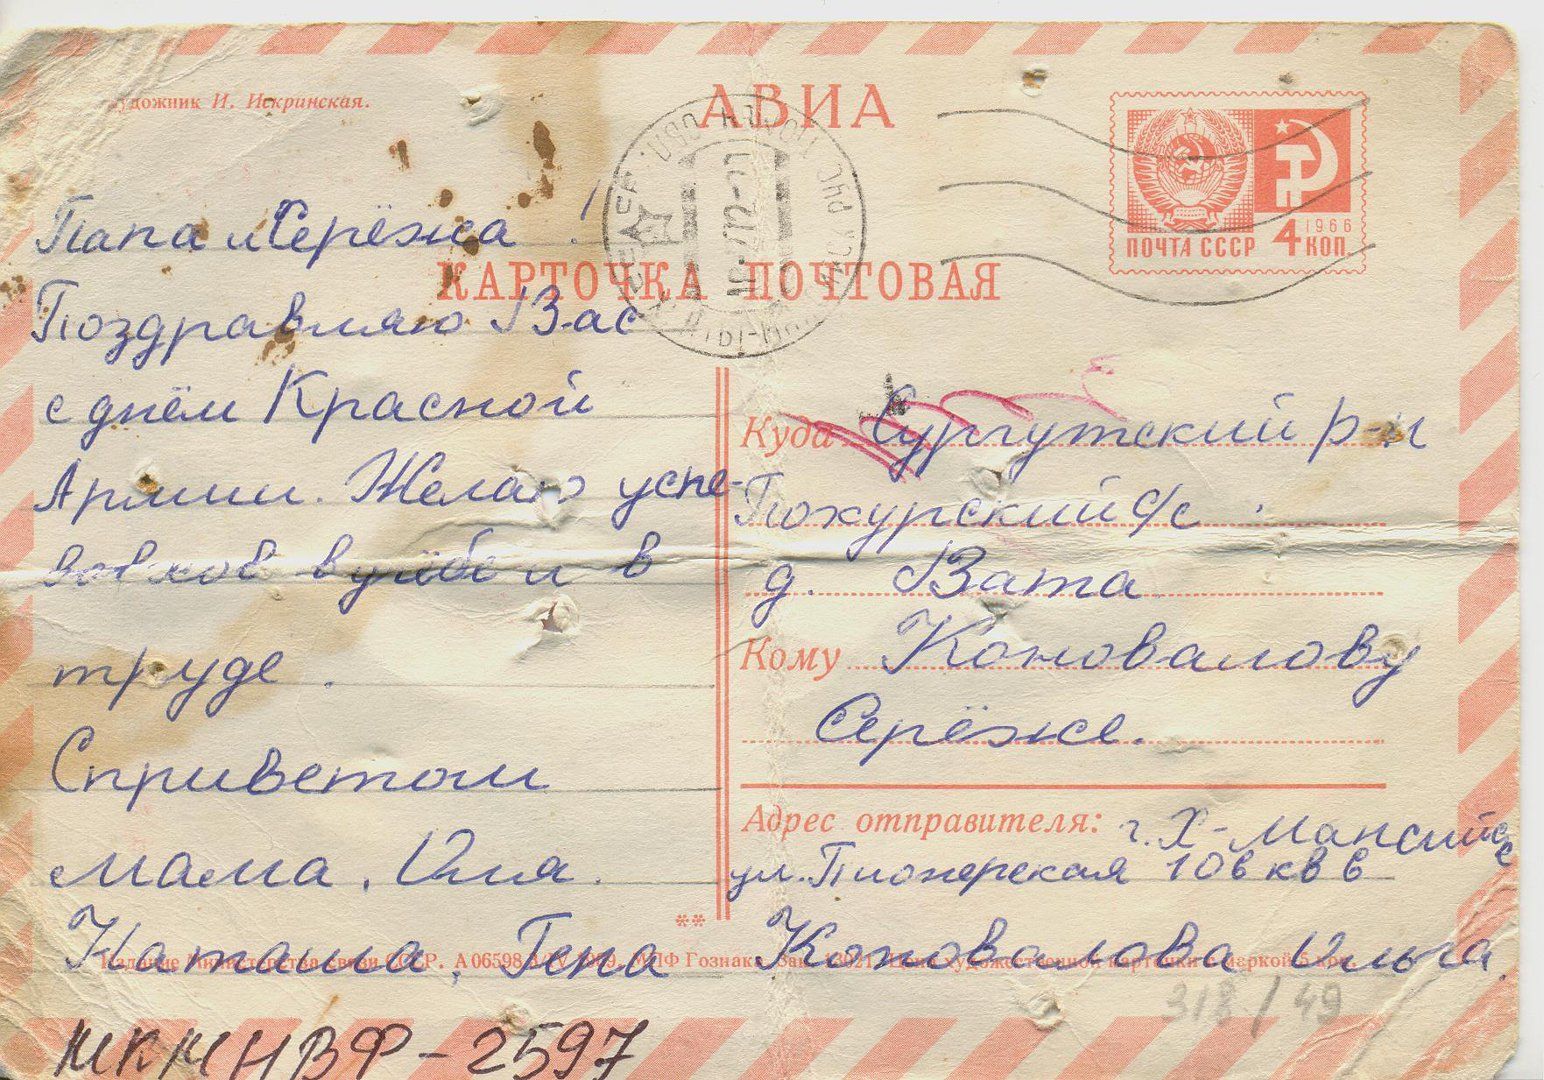 художник И. Искринская.
АВИА
ПОЧТА СССР 4 КОП.
1966
КАРТОЧКА ПОЧТОВАЯ
Папа и Серёжа!
Поздравляю Вас
с днём Красной
Армии. Желаю успе-
хов в учёбе и в
труде.
С приветом
мама, Оля.
Наташа, Гена
Куда Сургутский р-н
Покурский с/с
д. Вата
Кому Коновалову
Серёже.
Адрес отправителя: г. Х-Мансийс
ул. Пионерская 106 кв 6
Коновалова Ольга.
**
Издание Министерства связи СССР. А 06598 МПФ Гознака. Зак. 13021. Цена художественной карточки с маркой 5 коп.
318/49
МКМНВФ-2597